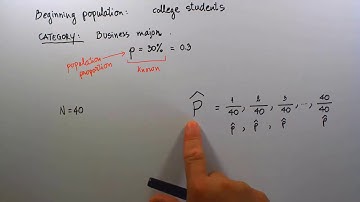 Beginning population: college students
CATEGORY: Business major.
p = 30% = 0.3
population proportion
known
N = 40
P̂ = 1/40, 2/40, 3/40, ..., 40/40
p̂, p̂, p̂ p̂